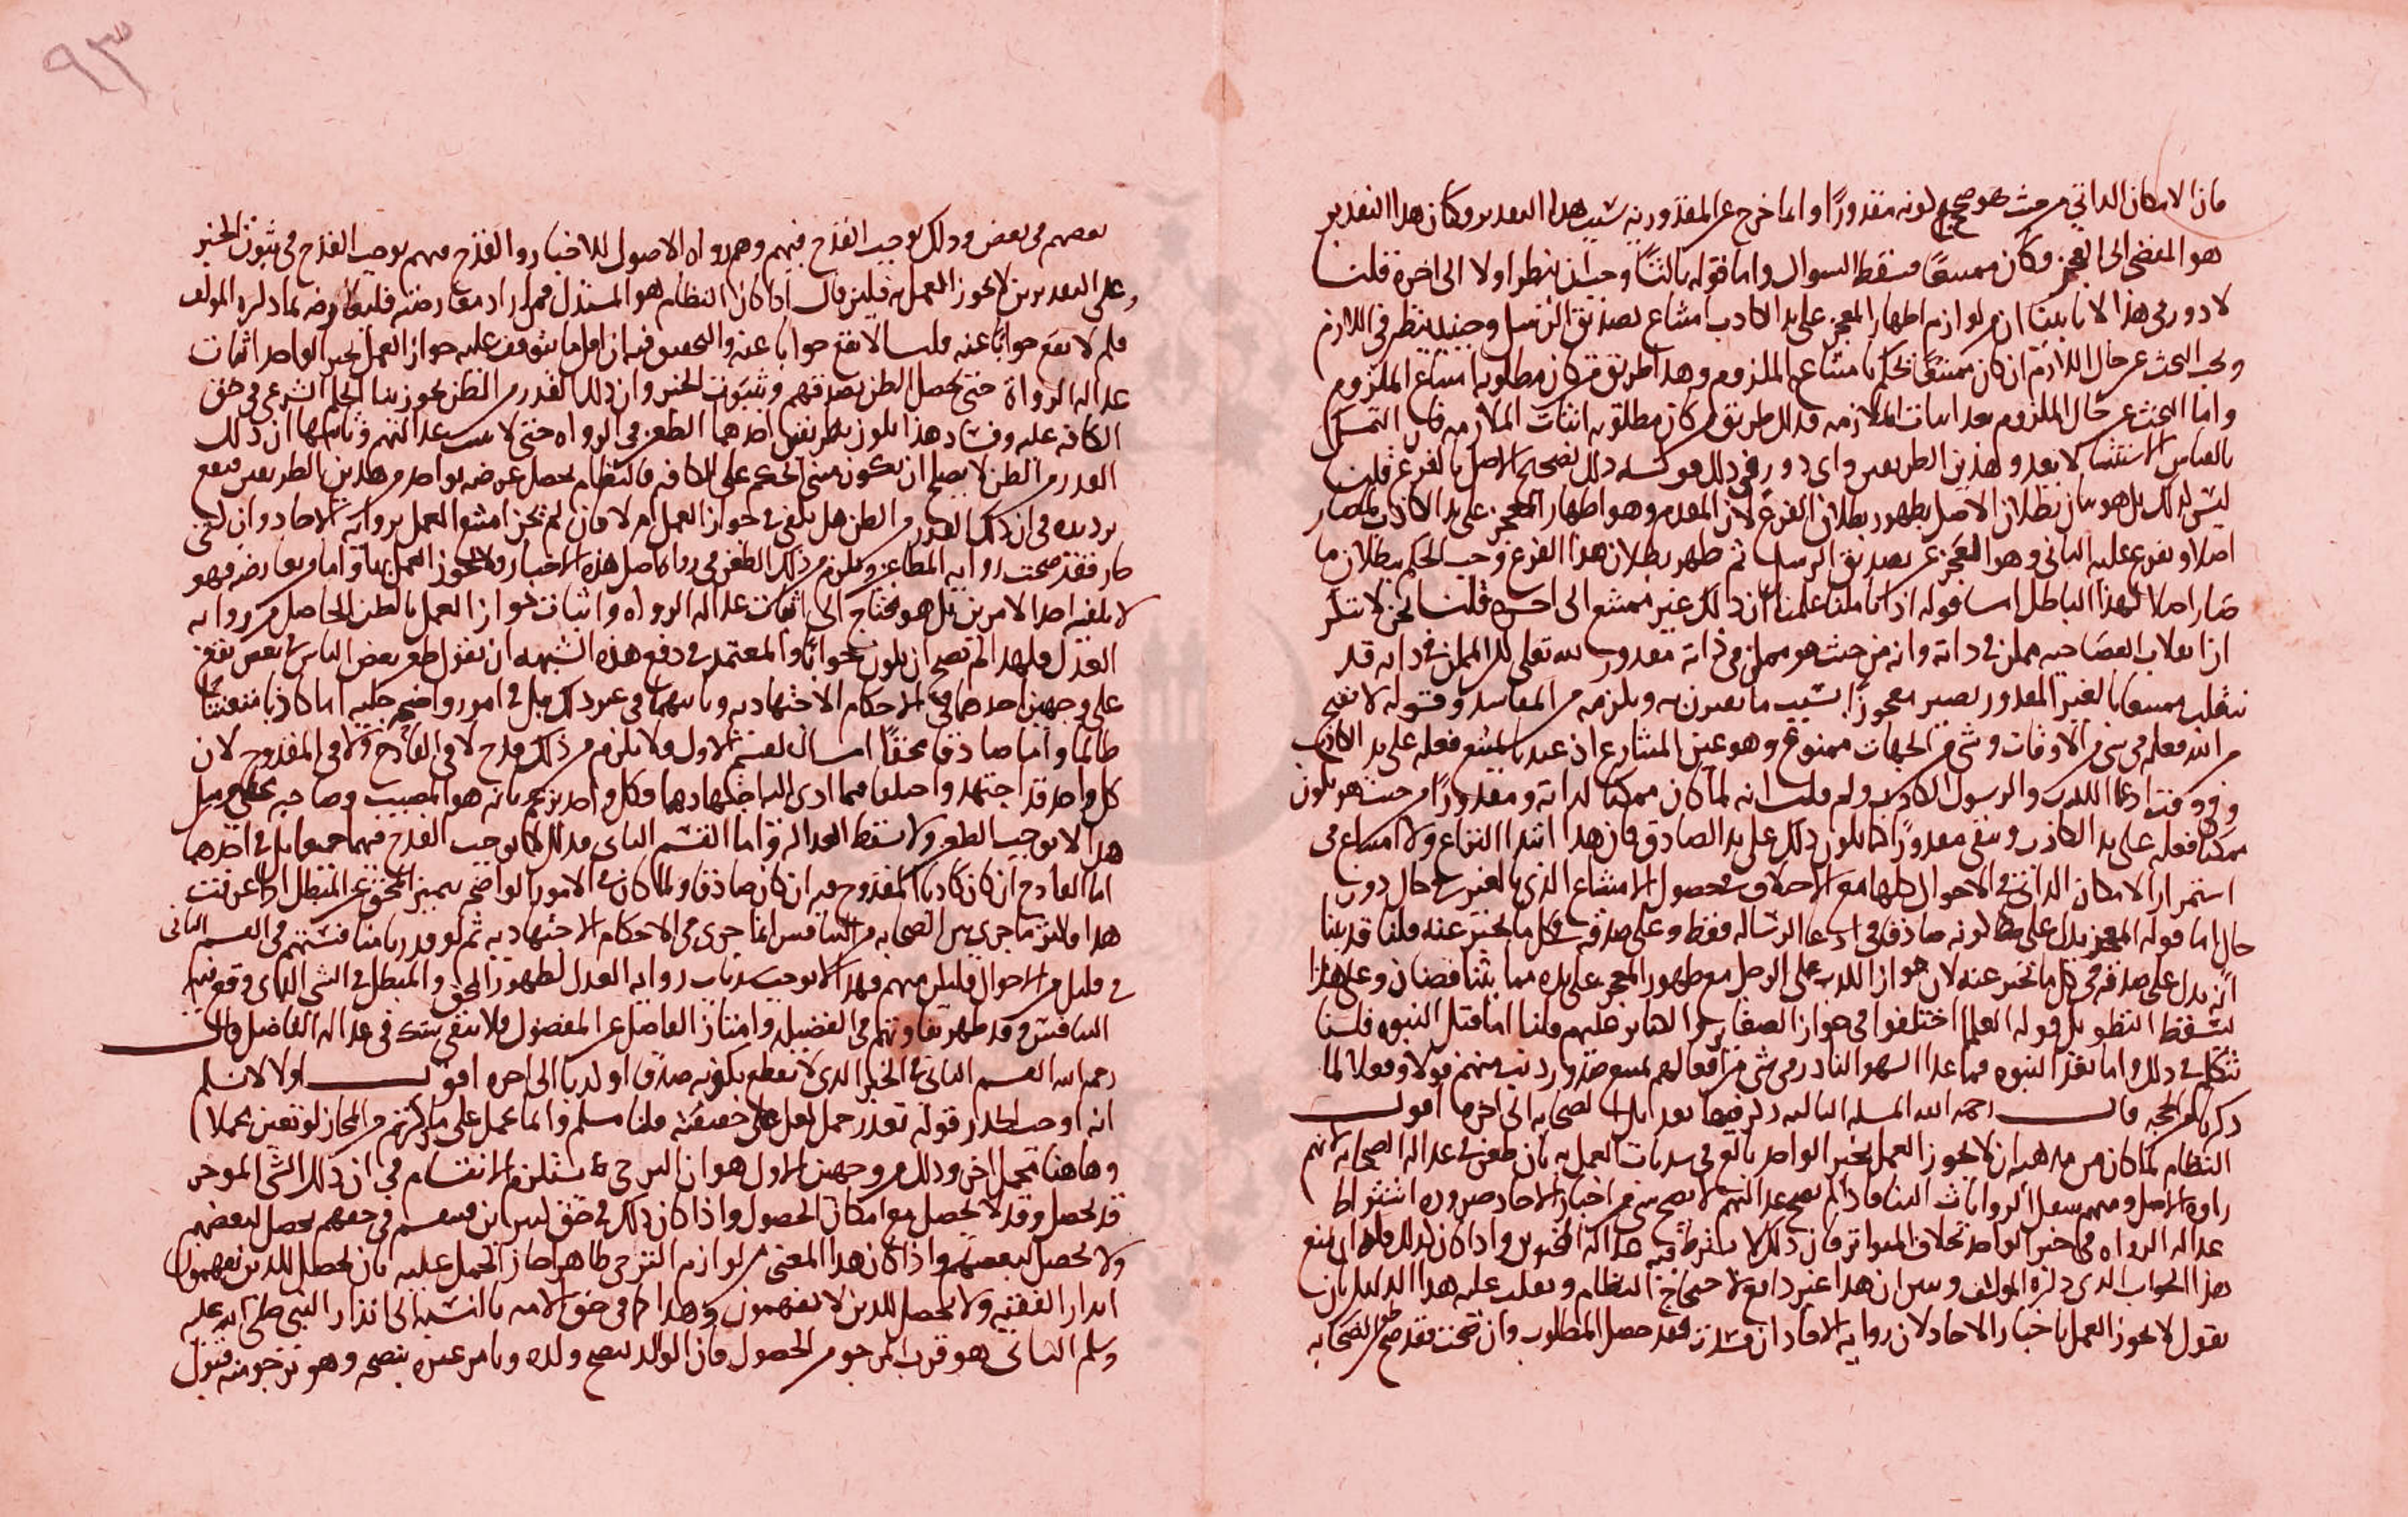 فان الامكان الذاتي من حيث هو مصحح لكونه مقدورا وانما خرج عن المقدورية بسبب هذا التقدير وكان هذا التقدير
هو المفضي الى العجز وكان ممتنعا فسقط السوال واما قوله ثالثا وحب ان ينظر اولا الى اخره قلنا
لا دور في هذا لانا بينا ان من لوازم اظهار المعجز على يد الكاذب امتناع تصديق الرسل وحينئذ ينظر في اللازم
ويجب البحث عن حال اللازم ان كان ممتنعا نحكم بامتناع الملزوم وهذا طريق من كان مطلوبه امتناع الملزوم
واما البحث عن حال الملزوم بعد اثبات الملازمه فذلك طريق من كان مطلوبه اثبات الملازمه فان التمسك
بالقياس الاستثنائي لا يعدو هذين الطريقين واي دور في ذلك قوله ذلك تصحيح الاصل بالفرع قلنا
ليس كذلك بل هو بيان بطلان الاصل بظهور بطلان الفرع لان المقدم وهو اظهار المعجز على يد الكاذب لما صار
اصلا وتفرع عليه الثاني وهو العجز عن تصديق الرسل ثم ظهر بطلان هذا الفرع وجب الحكم ببطلان ما
صار اصلا لهذا الباطل اما قوله اذا تاملنا علمنا ان ذلك غير ممتنع الى اخره قلنا نحن لا ننكر
ان انقلاب العصا حيه ممكن في ذاته وانه من حيث هو ممكن في ذاته مقدور لله تعالى لكن الممكن في ذاته قد
ينقلب ممتنعا بالغير المقدور يصير معجوزا بسبب ما يقترن به ويلزمه من المفاسد وقوله لا يقبح
من الله فعله في شي من الاوقات وشي من الجهات ممنوع وهو عين المتنازع اذ عندنا يمتنع فعله على يد الكاذب
وفي وقت ادعا الكذب والرسول الكاذب ولم قلت انه لما كان ممكنا لذاته ومقدورا من حيث هو يكون
ممكنا فعله على يد الكاذب ويبقى مقدورا كما يكون ذلك على يد الصادق فان هذا ابتدا النزاع ولا امتناع في
استمرار الامكان الذاتي في الاحوال كلها مع الاختلاف في حصول الامتناع الذي بالغير في حال دون
حال اما قوله المعجز يدل على كونه صادقا في ادعا الرساله فقط وعلى صدقه في كل ما يخبر عنه قلنا قد بينا
انه يدل على صدقه في كل ما يخبر عنه لان جواز الكذب على الرسل مع ظهور المعجز على يده مما يتناقضان وعلى هذا
يسقط التطويل قوله العلما اختلفوا في جواز الصغاير والكباير عليهم قلنا اما قبل النبوه فلسنا
نتكلم في ذلك واما بعد النبوه فما عدا السهو النادر في شي من افعالهم يمتنع صدور ذنب منهم قولا وفعلا لما
ذكرنا من الحجه قال رحمه الله المسله الثالثه ذكر فيها تعديل الصحابه الى اخره اقول
النظام لما كان من مذهبه ان لا يجوز العمل بخبر الواحد بالغ في سد باب العمل به بان طعن في عدالة الصحابه لانهم
رواه الاصل ومنهم ينقل الروايات الينا فاذا لم تصح عدالتهم لا يصح شي من اخبار الاحاد ضروره اشتراط
عدالة الرواه في خبر الواحد بخلاف المتواتر فان ذلك لا يشترط فيه عدالة المخبرين واذا كان كذلك فله ان يمنع
هذا الجواب الذي ذكره المولف وبين ان هذا غير دافع لاحتجاج النظام ويقلب عليه هذا الدليل بان
نقول لا يجوز العمل باخبار الاحاد لان رواية الاحاد ان فسدت فقد حصل المطلوب وان صحت فقد صح من الصحابه
٩٣
بعضهم في بعض وذلك يوجب القدح فيهم وهم رواه الاصول للاخبار والقدح فيهم يوجب القدح في ثبوت الخبر
وعلى التقديرين لا يجوز العمل به فلين قال اذا كان النظام هو المستدل فمن اراد معارضته فليعارضه بما ذكره المولف
فلم لا يقع جوابا عنه قلنا لا يقع جوابا عنه والتحقيق فيه ان اول ما يتوقف عليه جواز العمل بخبر الواحد اثبات
عدالة الرواة حتى يحصل الظن بصدقهم وثبوت الخبر وان ذلك القدر من الظن يجوز بنا الحكم الشرعي في حق
الكافه عليه وفساد هذا يكون بطريقين احدهما الطعن في الرواه حتى لا يثبت عدالتهم وثانيهما ان ذلك
القدر من الظن لا يصلح ان يكون مبنى الحكم على الكافه فالنظام يحصل غرضه بواحد من هذين الطريقين فيقع
ترديده في ان ذلك القدر من الظن هل يكفي في جواز العمل ام لا فان لم يجز امتنع العمل برواية الاحاد وان كفى
صار فقد صحت رواية المطاعن ويلزم من ذلك الطعن في رواة اصل هذه الاخبار فلا يجوز العمل بها واما من يعارضه فهو
لا يكفيه احد الامرين بل هو محتاج الى اثبات عدالة الرواه واثبات جواز العمل بالظن الحاصل من رواية
العدل فلهذا لم يصح ان يكون جوابا والمعتمد في دفع هذه الشبهه ان نقول طعن بعض الناس في بعض يقع
على وجهين احدهما في الاحكام الاجتهاديه وثانيهما في غير ذلك بل في امور واضحه جليه اما كاذبا متعنتا
ظالما واما صادقا محقا اما القسم الاول فلا يلزم من ذلك قدح لا في القادح ولا في المقدوح لان
كل واحد قد اجتهد واختلفا فيما ادى اليه اجتهادهما فكل واحد يزعم بانه هو المصيب وصاحبه مخطي ومثل
هذا لا يوجب الطعن ولا يسقط العدالة واما القسم الثاني فذلك لا يوجب القدح فيهما جميعا بل في احدهما
اما القادح ان كان كاذبا او المقدوح فيه ان كان صادقا ولما كان في الامور الواضحه يتميز المحق عن المبطل اذا عرفت
هذا فاكثر ما جرى بين الصحابه من التنافس انما جرى في الاحكام الاجتهاديه ثم لو قدرنا منافستهم في القسم الثاني
في قليل من الاحوال قليل منهم فهذا لا يوجب سد باب رواية العدل لظهور المحق والمبطل في الشي الذي وقع فيه
التنافس وقد ظهر تفاوتهم في الفضيله وامتاز الفاضل عن المفضول فلا يبقى شك في عدالة الفاضل قال
رحمه الله القسم الثاني في الخبر الذي لا يقطع بكونه صدقا او كذبا الى اخره اقول اولا لا نسلم
انه اوجب الحذر قوله تعذر حمل لعل على حقيقته قلنا مسلم وانما يحمل على ما ذكرتم من المجاز لو تعين محملا
وهاهنا محمل اخر وذلك من وجهين الاول هو ان الترجي يستلزم الانقسام في ان ذلك الشي المرجو
قد يحصل وقد لا يحصل مع امكان الحصول واذا كان ذلك في حق كثيرين فينقسم في حقهم يحصل لبعضهم
ولا يحصل لبعضهم واذا كان هذا المعنى من لوازم الترجي ظاهرا جاز الحمل عليه بان يحصل للذين يفهمون
انذار الفقيه ولا يحصل للذين لا يفهمون وهذا كما في حق الامه بالنسبه الى انذار النبي صلى الله عليه
وسلم الثاني هو قرب المرجو من الحصول فان الوالد ينصح ولده ويامر غيره بنصحه وهو يرجو منه قبول